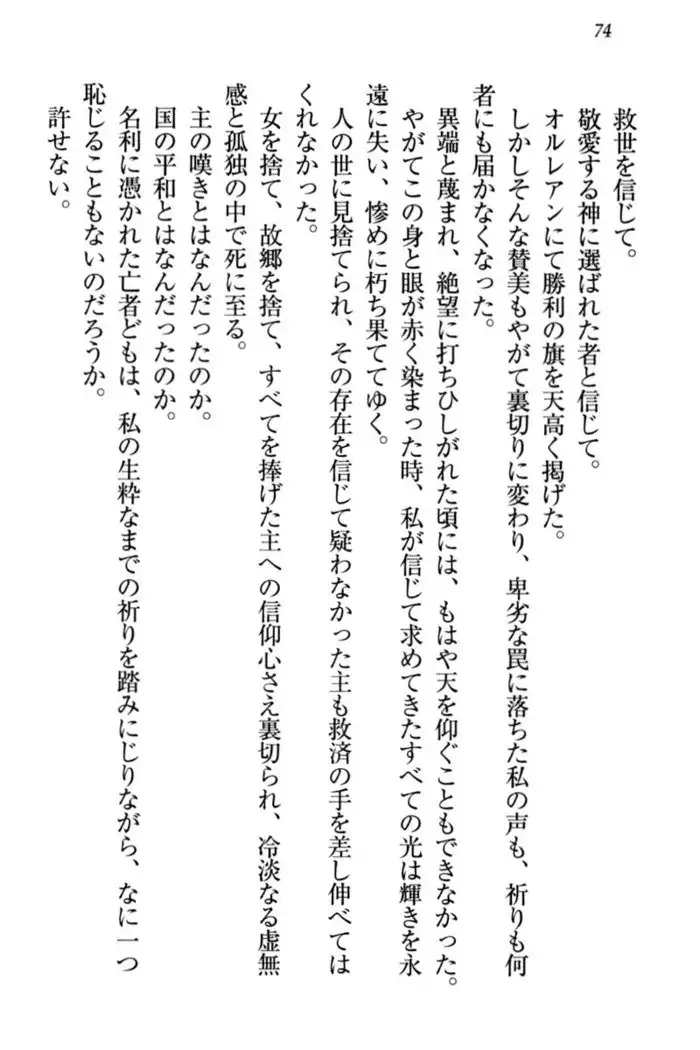 74
救世を信じて。
敬愛する神に選ばれた者と信じて。
オルレアンにて勝利の旗を天高く掲げた。
しかしそんな賛美もやがて裏切りに変わり、卑劣な罠に落ちた私の声も、祈りも何
者にも届かなくなった。
異端と蔑まれ、絶望に打ちひしがれた頃には、もはや天を仰ぐこともできなかった。
やがてこの身と眼が赤く染まった時、私が信じて求めてきたすべての光は輝きを永
遠に失い、惨めに朽ち果ててゆく。
人の世に見捨てられ、その存在を信じて疑わなかった主も救済の手を差し伸べては
くれなかった。
女を捨て、故郷を捨て、すべてを捧げた主への信仰心さえ裏切られ、冷淡なる虚無
感と孤独の中で死に至る。
主の嘆きとはなんだったのか。
国の平和とはなんだったのか。
名利に憑かれた亡者どもは、私の生粋なまでの祈りを踏みにじりながら、なに一つ
恥じることもないのだろうか。
許せない。